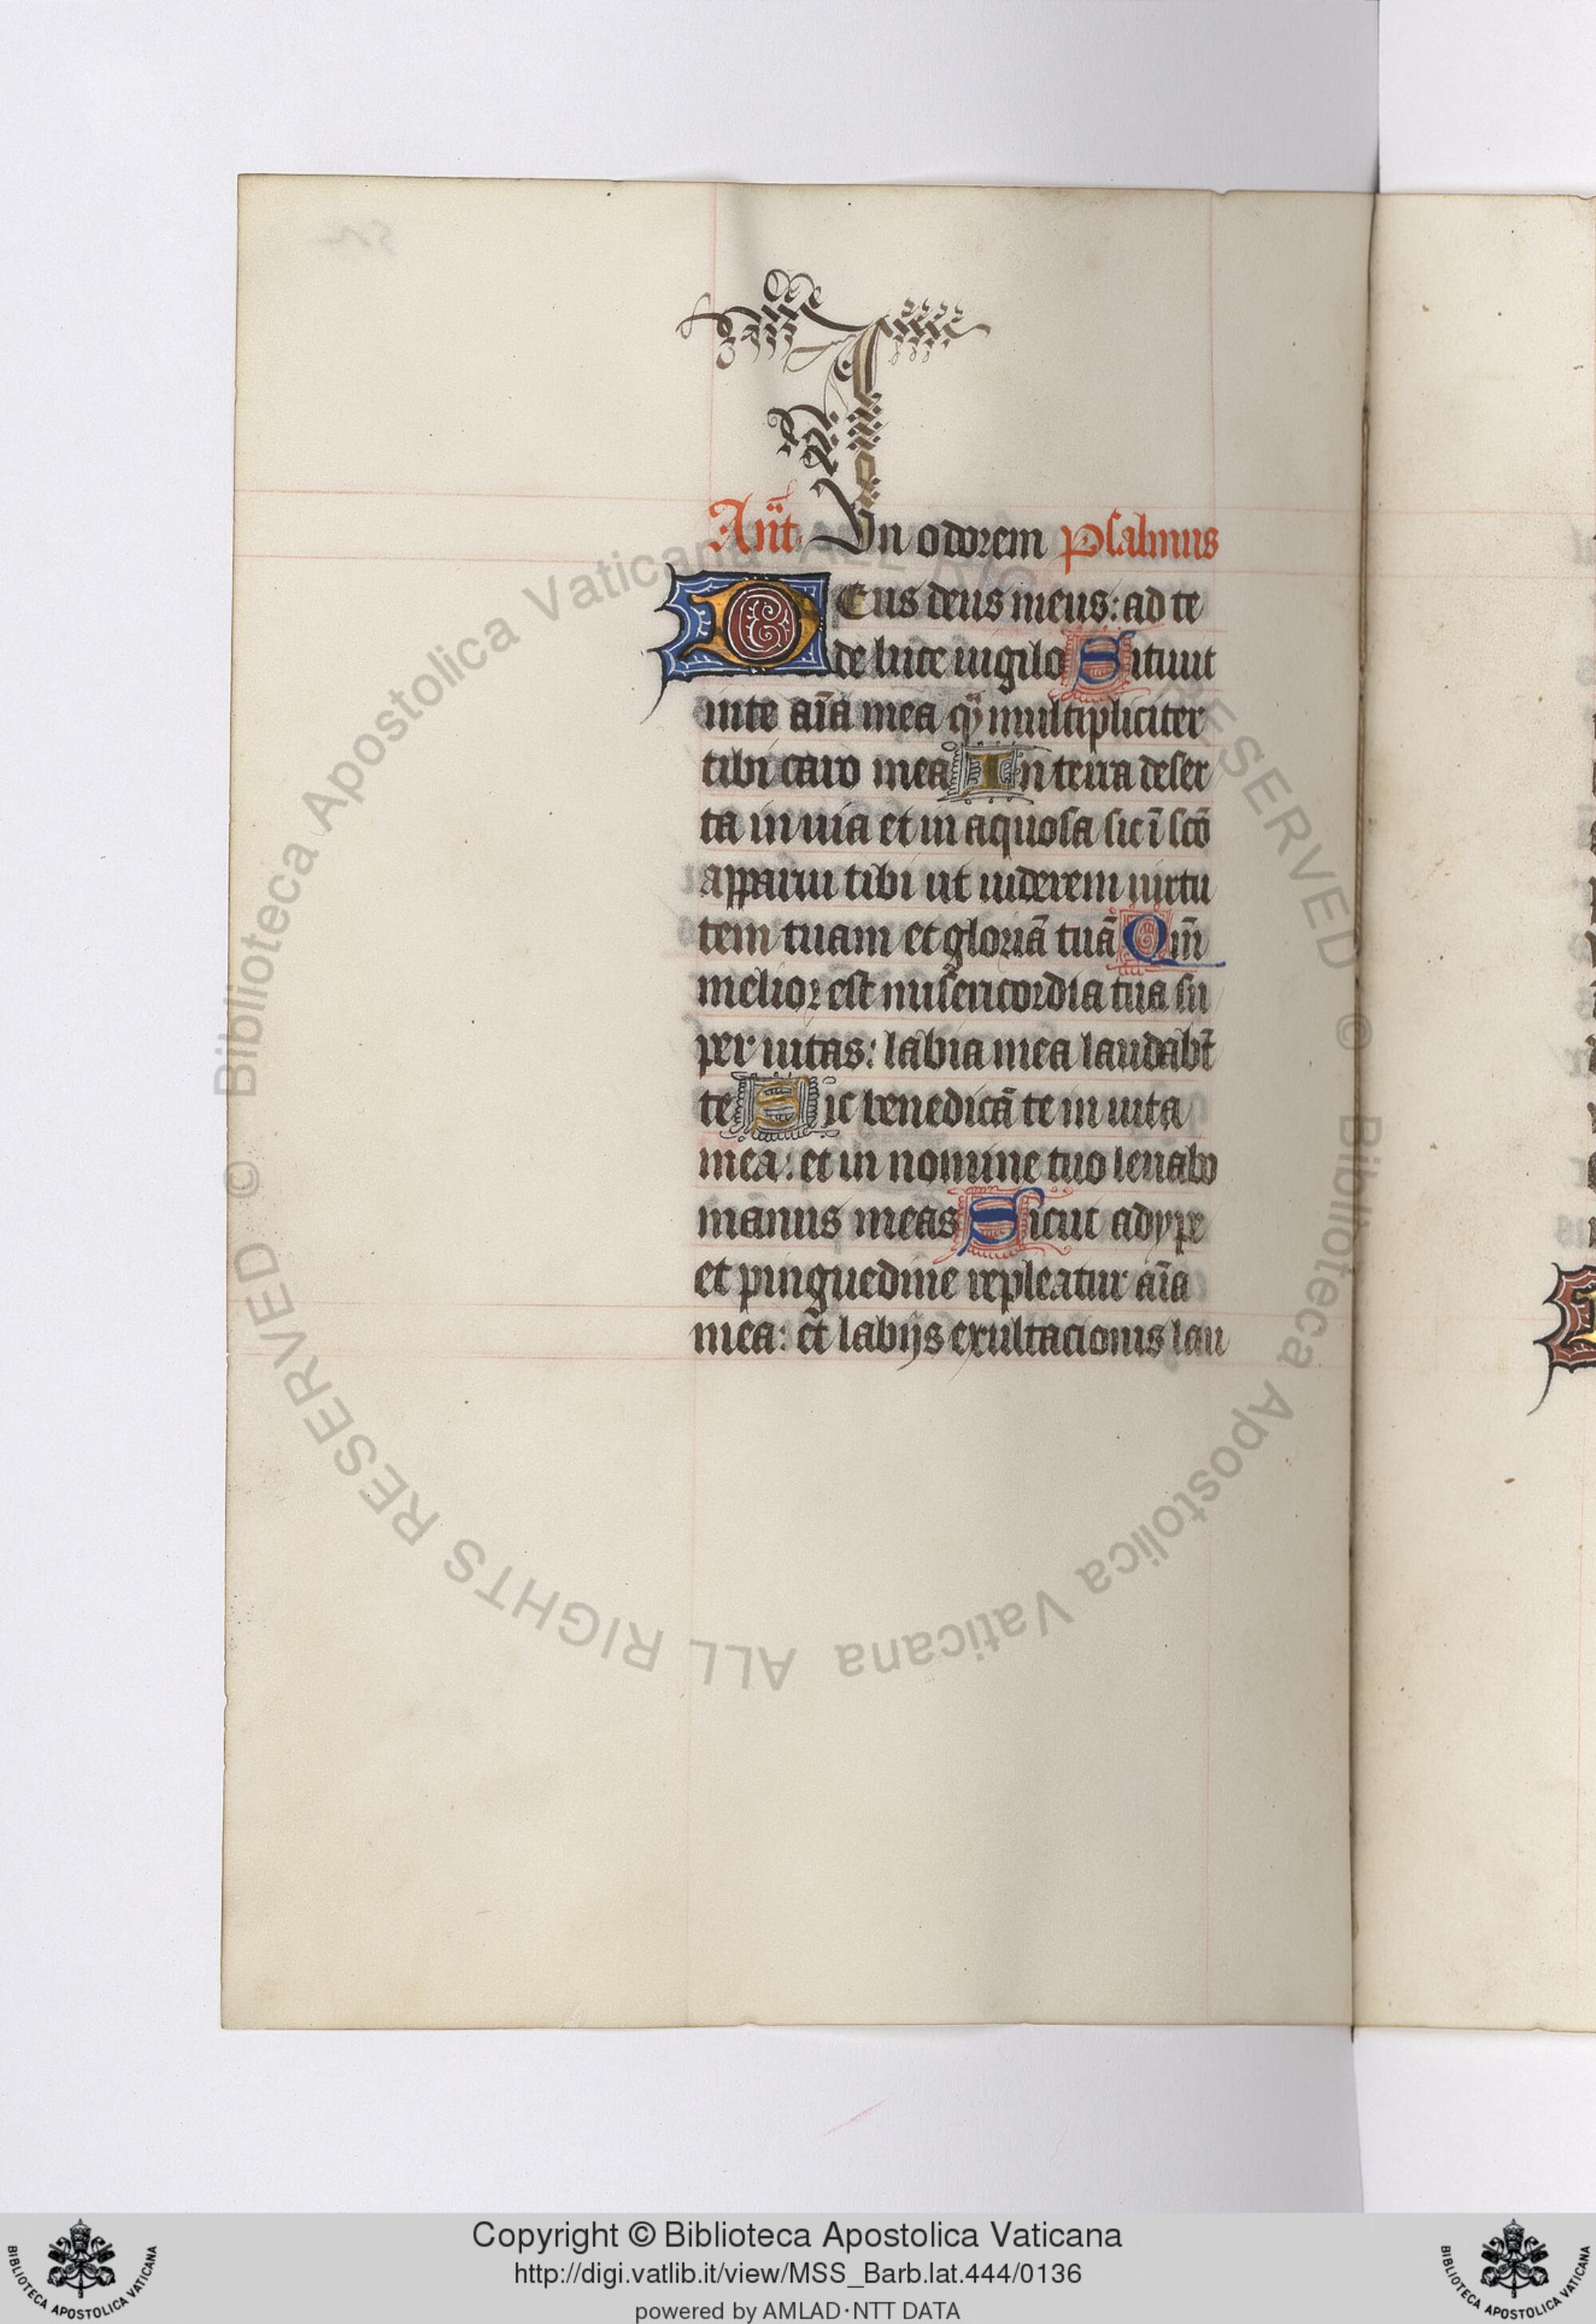 Añt In odorem psalmus
DEus deus meus: ad te
de luce uigilo Sitiuit
in te aīa mea qͣ multipliciter
tibi caro mea In terra deser
ta in uia et in aquosa sic ī scō
apparui tibi ut uiderem uirtu
tem tuam et gloriā tuā Qm̄
melior est misericordia tua su
per uitas: labia mea laudabt̄
te Sic benedicā te in uita
mea: et in nomine tuo leuabo
manus meas Sicut adype
et pinguedine repleatur aīa
mea: et labijs exultacionis lau
© Biblioteca Apostolica Vaticana ALL RIGHTS RESERVED © Biblioteca Apostolica Vaticana ALL RIGHTS RESERVED
Copyright © Biblioteca Apostolica Vaticana
http://digi.vatlib.it/view/MSS_Barb.lat.444/0136
powered by AMLAD·NTT DATA
BIBLIOTECA APOSTOLICA VATICANA
BIBLIOTECA APOSTOLICA VATICANA